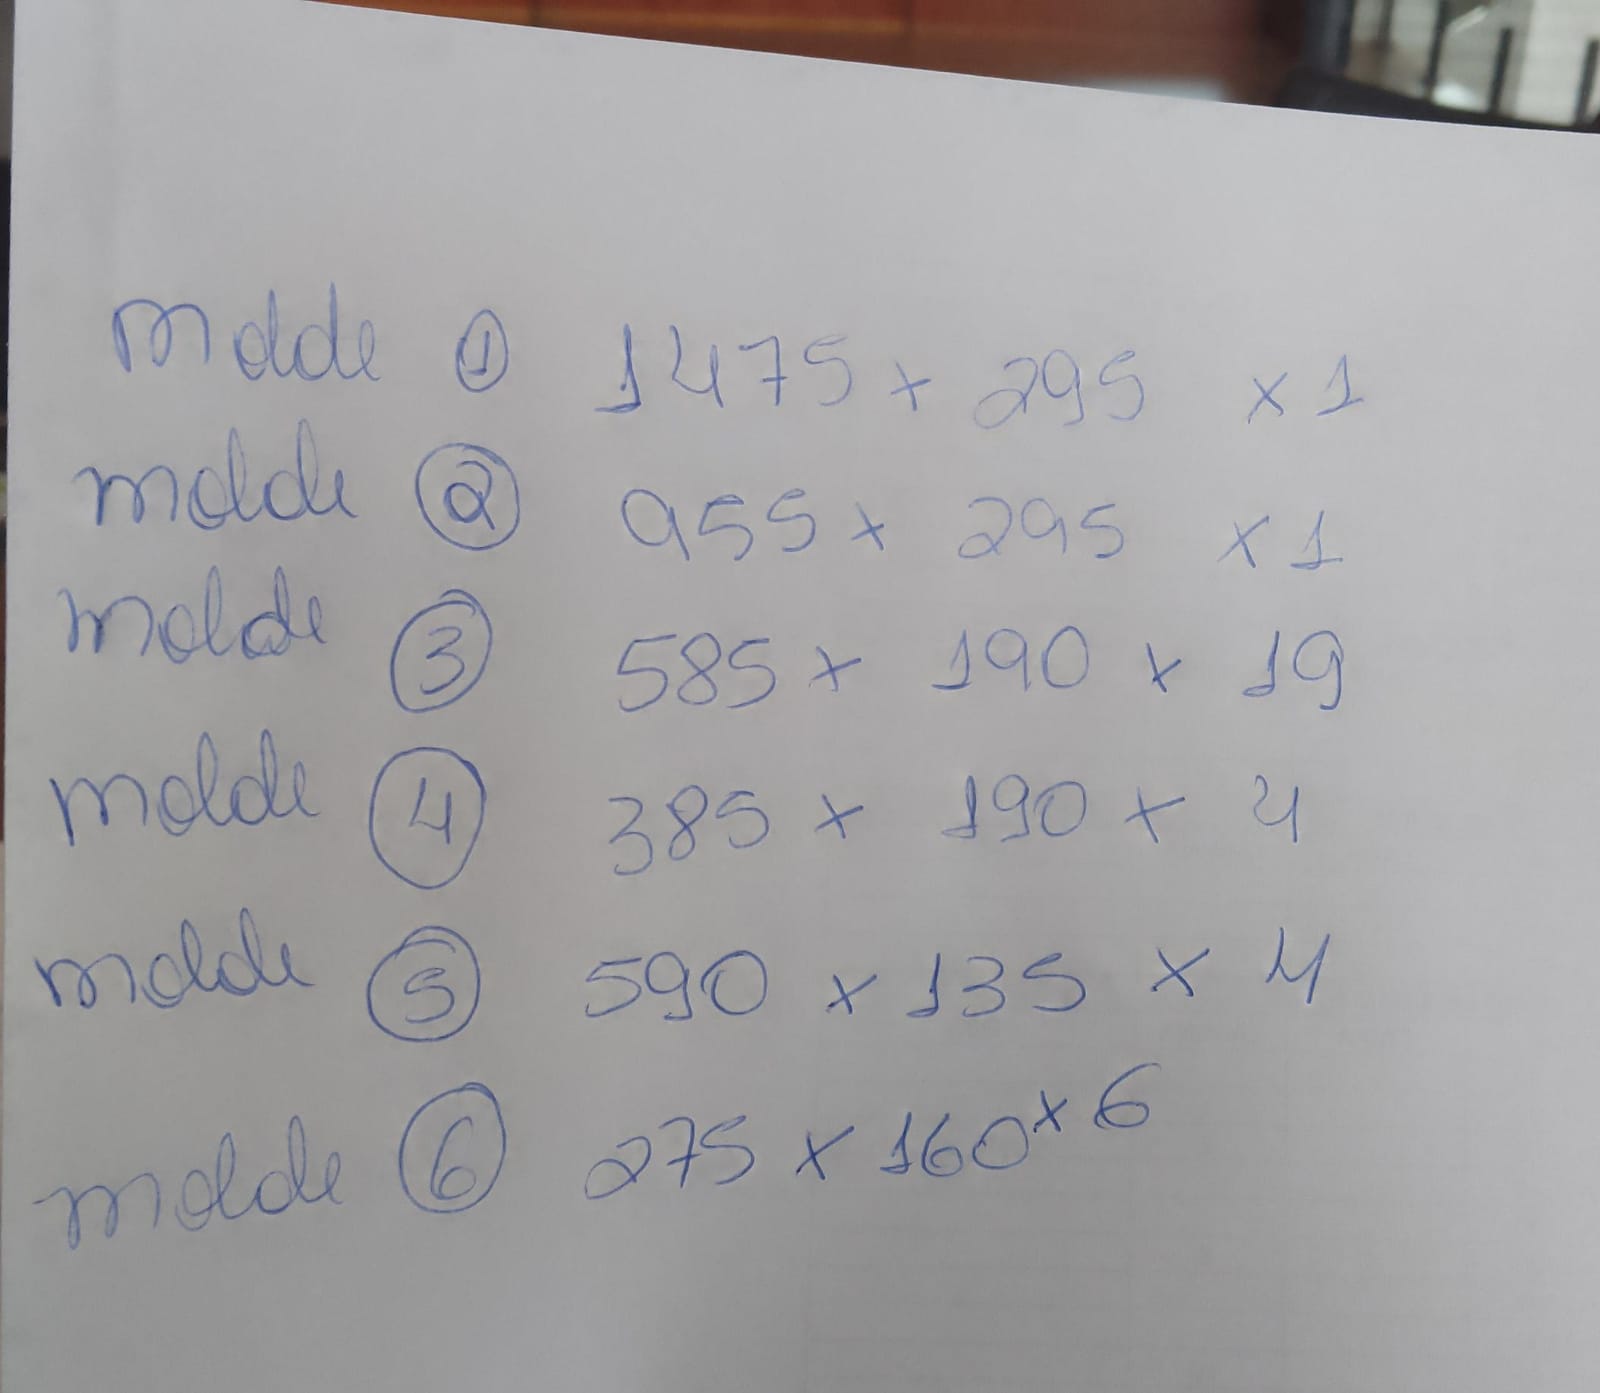 molde ① 1475 x 295 x 1
molde ② 955 x 295 x 1
molde ③ 585 x 190 x 19
molde ④ 385 x 190 x 4
molde ⑤ 590 x 135 x 4
molde ⑥ 275 x 160 x 6